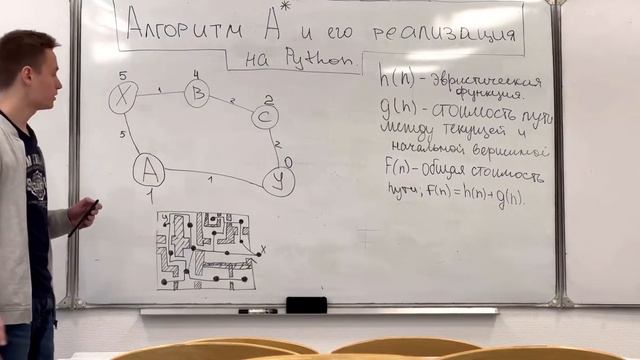 Алгоритм А* и его реализация
на Python.
5
X
1
4
B
2
2
C
5
2
A
1
1
0
y
h(n) - эвристическая
функция.
g(n) - стоимость пути
между текущей и
начальной вершиной
F(n) - общая стоимость
пути, F(n) = h(n) + g(n).
y
x